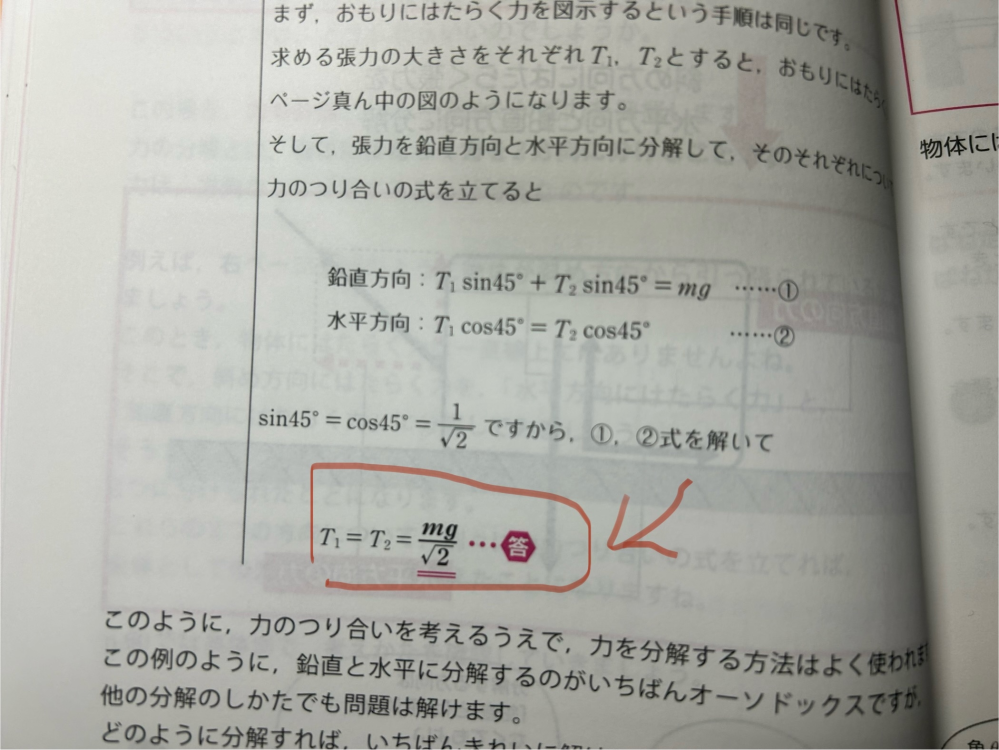 まず，おもりにはたらく力を図示するという手順は同じです。
求める張力の大きさをそれぞれT₁，T₂とすると，おもりにはたらく
ページ真ん中の図のようになります。
そして，張力を鉛直方向と水平方向に分解して，そのそれぞれについ
力のつり合いの式を立てると
鉛直方向：T₁ sin45° + T₂ sin45° = mg ……①
水平方向：T₁ cos45° = T₂ cos45° ……②
sin45° = cos45° = 1/√2 ですから，①，②式を解いて
T₁ = T₂ = mg/√2 …答
このように，力のつり合いを考えるうえで，力を分解する方法はよく使われま
この例のように，鉛直と水平に分解するのがいちばんオーソドックスですが，
他の分解のしかたでも問題は解けます。
どのように分解すれば，いちばんきれいに解け
物体には